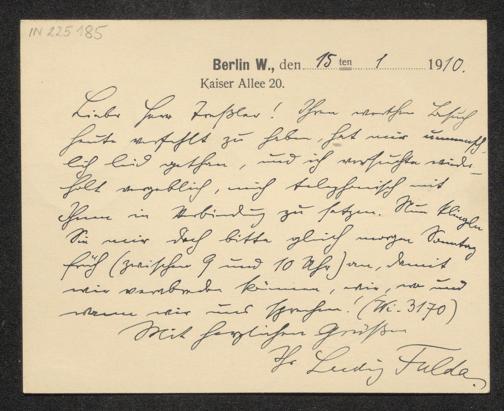 IN 225185
Berlin W., den 15 ten 1 1910.
Kaiser Allee 20.
Lieber Herr Treßler! Ihren werthen Besuch
heute verfehlt zu haben, hat mir unmensch-
lich leid gethan, und ich versuchte wieder-
holt vergeblich, mich telephonisch mit
Ihnen in Verbindung zu setzen. Nun klingeln
Sie mir doch bitte gleich morgen Sonntag
früh (zwischen 9 und 10 Uhr) an, damit
wir verabreden können, wie, wo und
wann wir uns sprechen! (Wi. 3170)
Mit herzlichen Grüßen
Ihr Ludwig Fulda.